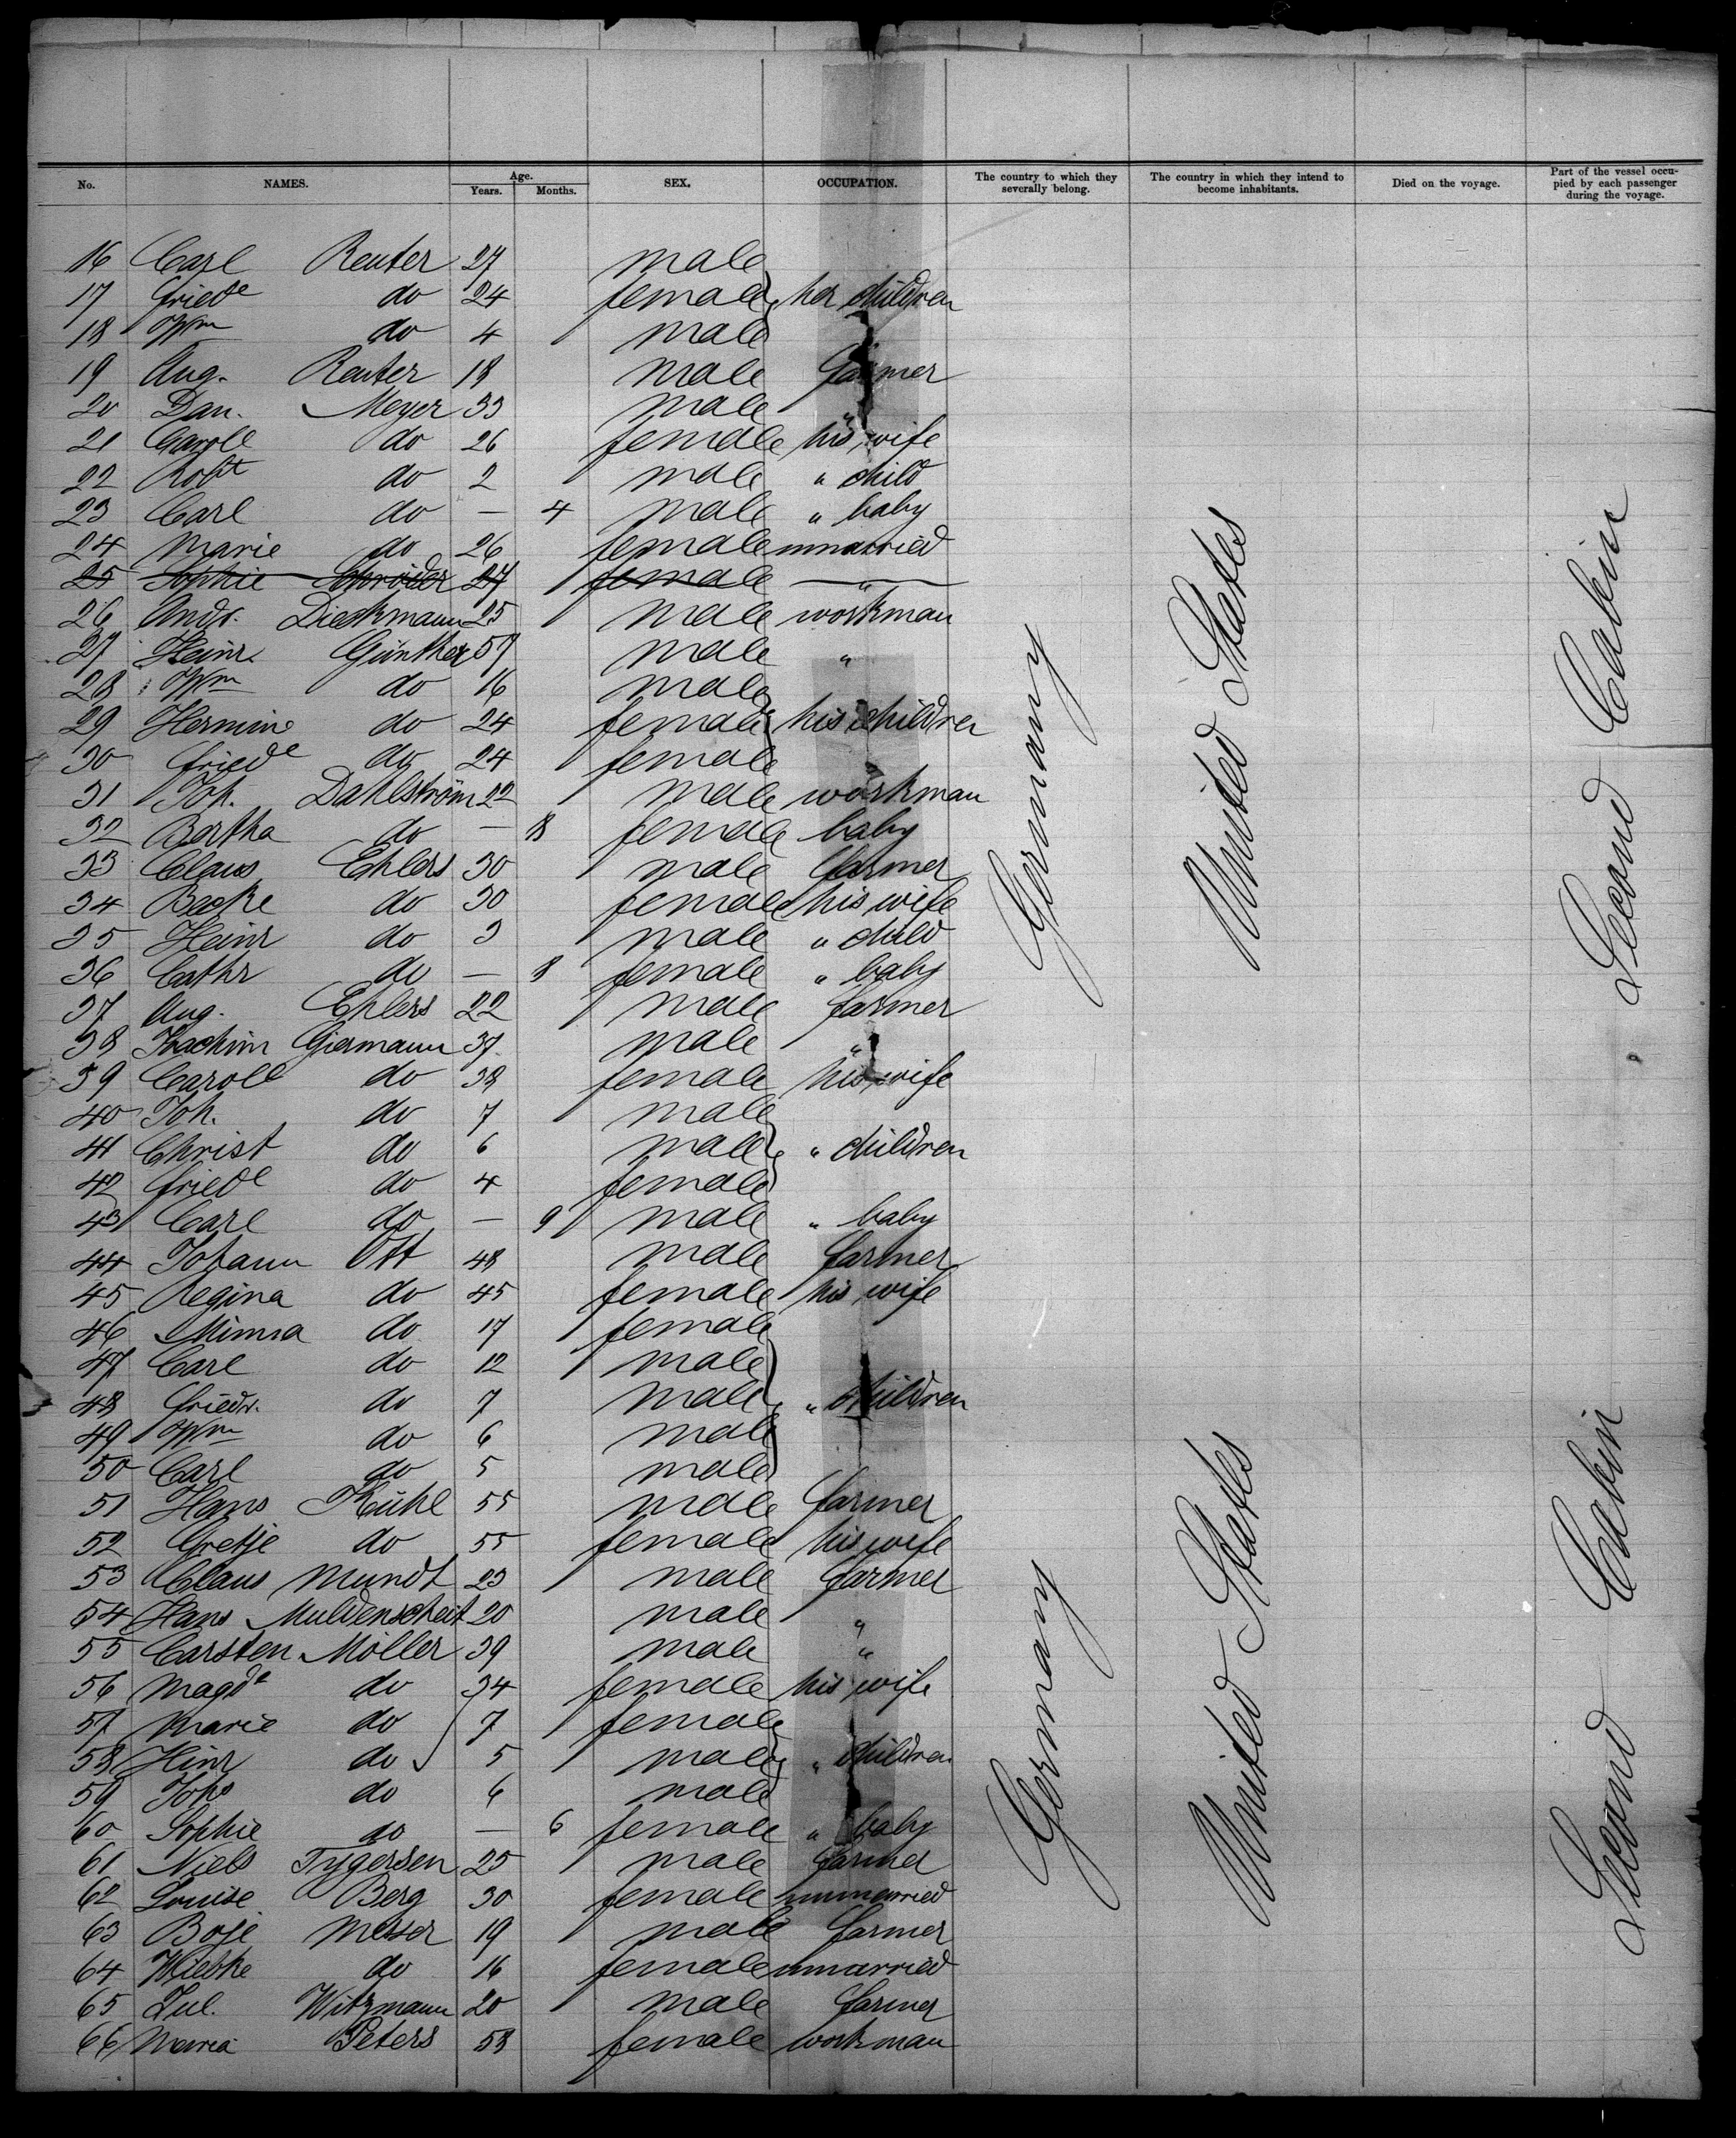 No. NAMES. Age. Years. Months. SEX. OCCUPATION. The country to which they severally belong. The country in which they intend to become inhabitants. Died on the voyage. Part of the vessel occupied by each passenger during the voyage.
16 Carl Reuter 27 male
17 Friede do 24 female her children
18 Wm do 4 male
19 Aug. Reuter 18 male farmer
20 Dan. Meyer 33 male "
21 Carole do 26 female his wife
22 Robt do 2 male " child
23 Carl do — 4 male " baby
24 Marie do 26 female unmarried
25 Sophie Schröder 27 female "
26 Andr. Dieckmann 25 male workman
27 Heinr. Günther 57 male "
28 Wm do 16 male
29 Hermine do 24 female his children
30 Friede do 24 female
31 Joh. Dahlström 22 male workman
32 Bertha do — 8 female baby
33 Claus Ehlers 30 male farmer
34 Becke do 30 female his wife
35 Heinr do 3 male " child
36 Cathr do — 8 female " baby
37 Aug. Ehlers 22 male farmer
38 Joachim Giermann 37 male "
39 Carole do 38 female his wife
40 Joh. do 7 male
41 Christ do 6 male " children
42 Friede do 4 female
43 Carl do — 9 male " baby
44 Johann Ott 48 male farmer
45 Regina do 45 female his wife
46 Minna do 17 female
47 Carl do 12 male
48 Friedr. do 7 male " children
49 Wm do 6 male
50 Carl do 5 male
51 Hans Kühl 55 male farmer
52 Gretje do 55 female his wife
53 Claus Mundt 23 male farmer
54 Hans Muldenscheit 20 male "
55 Carsten Möller 39 male "
56 Magde do 34 female his wife
57 Marie do 7 female
58 Hinr do 5 male " children
59 Johs do 6 male
60 Sophie do — 6 female " baby
61 Niels Tygersen 25 male farmer
62 Louise Berg 30 female unmarried
63 Boje 19 male farmer
64 Wiebke do 16 female unmarried
65 Jul. Witzmann 20 male farmer
66 Maria Peters 58 female workman
Germany United States Second Cabin
Germany United States Second Cabin